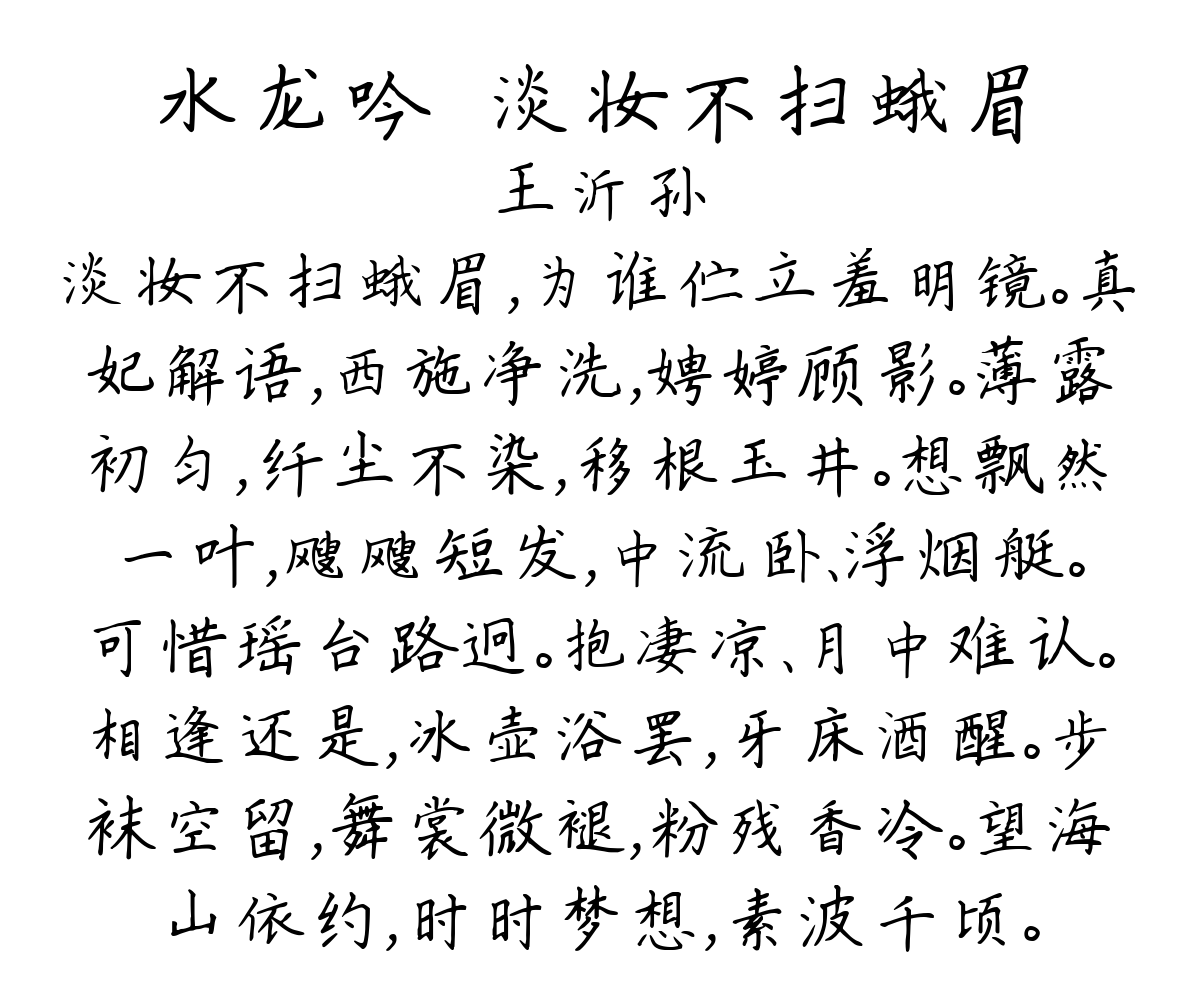 水龙吟 淡妆不扫蛾眉
王沂孙
淡妆不扫蛾眉,为谁伫立羞明镜。真
妃解语,西施净洗,娉婷顾影。薄露
初匀,纤尘不染,移根玉井。想飘然
一叶,飕飕短发,中流卧、浮烟艇。
可惜瑶台路迥。抱凄凉、月中难认。
相逢还是,冰壶浴罢,牙床酒醒。步
袜空留,舞裳微褪,粉残香冷。望海
山依约,时时梦想,素波千顷。